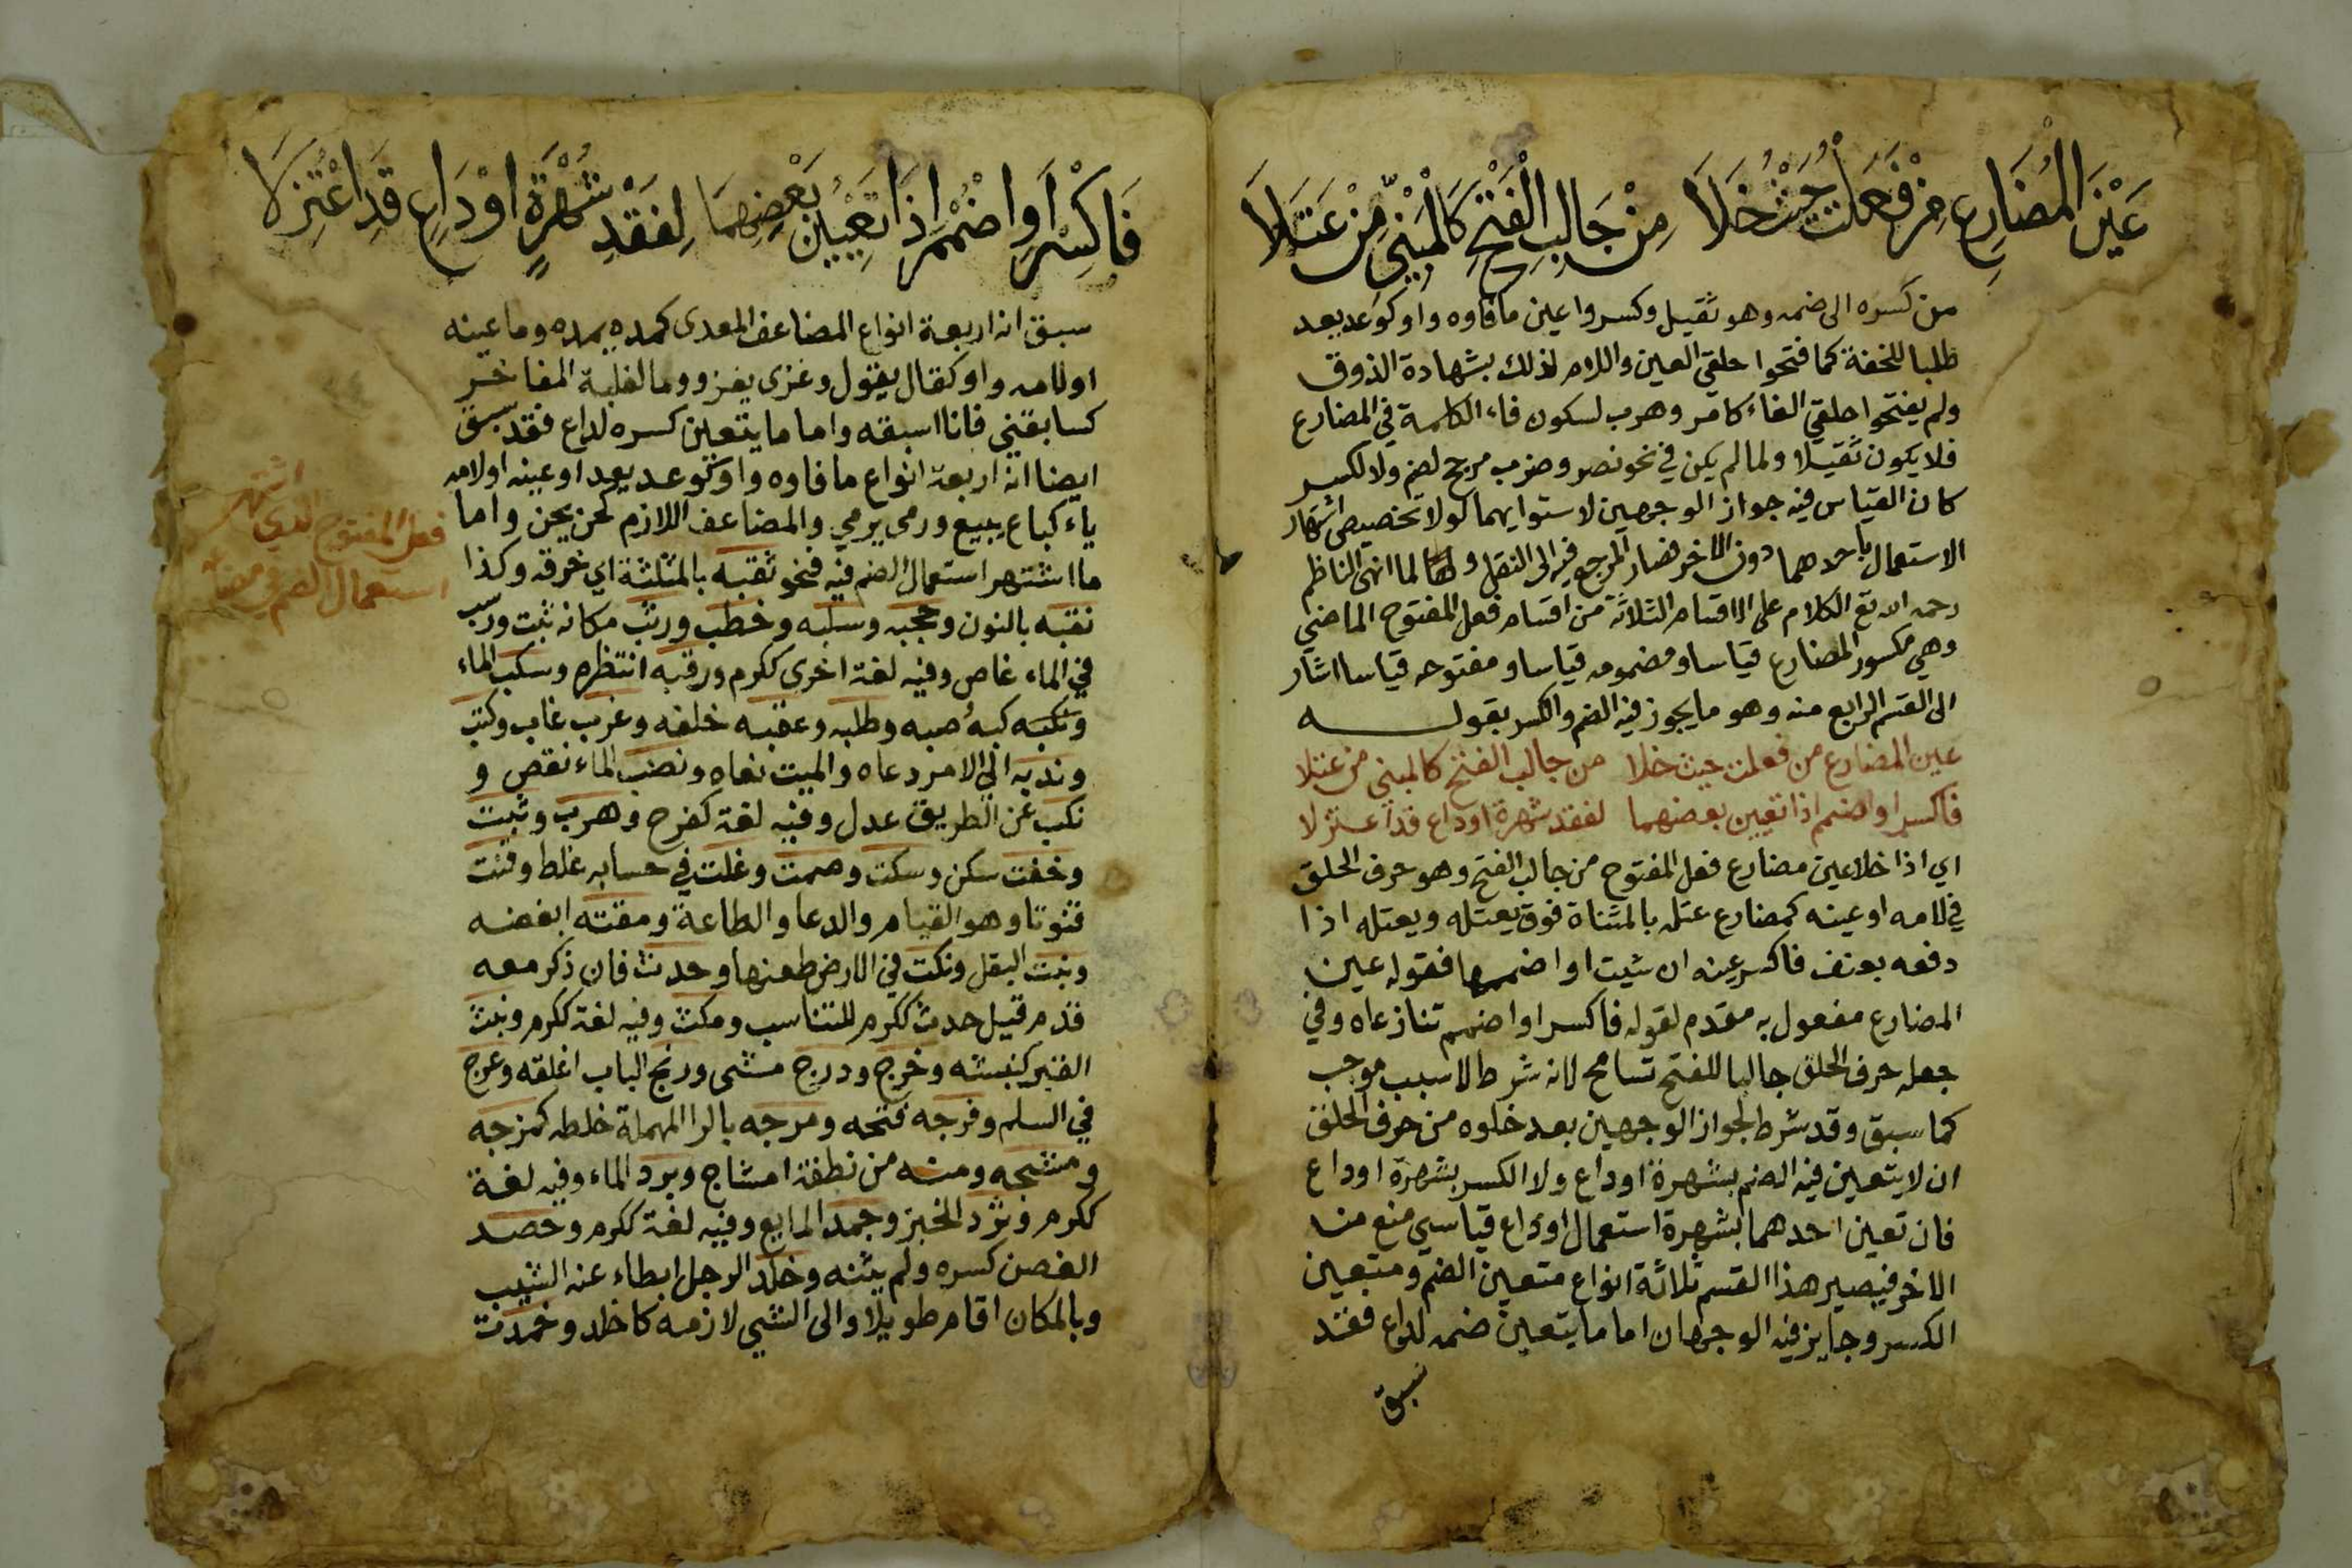 عَيْنَ الْمُضَارِعِ مِنْ فَعَلْتُ حَيْثُ خَلَا مِنْ جَالِبِ الْفَتْحِ كَالْمَبْنِيِّ مِنْ عَتَلَا
من كسره الى ضمه وهو ثقيل وكسروا عين ما فاوه واو كوعد يعد
طلبا للخفة كما فتحوا حلقي العين واللام لذلك بشهادة الذوق
ولم يفتحوا حلقي الفاء كامر وهرب لسكون فاء الكلمة في المضارع
فلا يكون ثقيلا ولما لم يكن في نحو نصر وضرب مرجح لضم ولا لكسر
كان القياس فيه جواز الوجهين لاستوايهما لولا تخصيص اشتهار
الاستعمال باحدهما دون الاخر فصار المرجع فيه الى النقل ولما انهى الناظم
رحمه الله تع الكلام على الاقسام الثلاثة من اقسام فعل المفتوح الماضي
وهي مكسور المضارع قياسا ومضمومه قياسا ومفتوحه قياسا اشار
الى القسم الرابع منه وهو ما يجوز فيه الضم والكسر بقولـــــه
عين المضارع من فعلت حيث خلا من جالب الفتح كالمبني من عتلا
فاكسر او اضمم اذا تعيين بعضهما لفقد شهرة او داع قد اعتزلا
اي اذا خلا عين مضارع فعل المفتوح من جالب الفتح وهو حرف الحلق
في لامه او عينه كمضارع عتل بالمثناة فوق يعتله ويعتله اذا
دفعه بعنف فاكسر عينه ان شيت او اضممها فقوله عين
المضارع مفعول به مقدم لقوله فاكسر او اضمم تنازعاه وفي
جعله حرف الحلق جالبا للفتح تسامح لانه شرط لا سبب موجب
كما سبق وقد شرط لجواز الوجهين بعد خلوه من حرف الحلق
ان لا يتعين فيه الضم بشهرة او داع ولا الكسر بشهرة او داع
فان تعين احدهما بشهرة استعمال او داع قياسي منع منـ
الاخر فيصير هذا القسم ثلاثة انواع متعين الضم ومتعين
الكسر وجايز فيه الوجهان اما ما يتعين ضمه لداع فقد
سبق
فَاكْسِرْ اَوِ اضْمُمْ اِذَا تَعْيِينُ بَعْضِهِمَا لِفَقْدِ شُهْرَةٍ اَوْ دَاعٍ قَدِ اعْتُزِلَا
سبق انه اربعة انواع المضاعف المعدى كمده يمده وما عينه
او لامه واو كقال يقول وغزى يغزو وما لغلبة المفاخر
كسابقني فانا اسبقه واما ما يتعين كسره لداع فقد سبق
ايضا انه اربعة انواع ما فاوه واو كوعد يعد او عينه او لامه
ياء كباع يبيع ورمى يرمي والمضاعف اللازم كحن يحن واما
ما اشتهر استعمال الضم فيه فنحو ثقبه بالمثلثة اي خرقه وكذا
نقبه بالنون وحجبه وسلبه وخطب ورتب مكانه ثبت ورسب
في الماء غاص وفيه لغة اخرى ككرم ورقبه انتظره وسكب الماء
وكبه صبه وطلبه وعقبه خلفه وغرب غاب وكتب
وندبه الى الامر دعاه والميت نعاه ونضب الماء نقص و
نكب عن الطريق عدل وفيه لغة كفرح وهرب وثبت
وخفت سكن وسكت وصمت وغلت في حسابه غلط وقنت
قنوتا وهو القيام والدعا والطاعة ومقته ابغضه
ونبت البقل ونكت في الارض طعنها وحدث فان ذكر معه
قدم قيل حدث ككرم للتناسب ومكث وفيه لغة ككرم ونبث
القبر كنبشه وخرج ودرج مشى ورتج الباب اغلقه وعرج
في السلم وفرجه فتحه ومرجه بالرا المهملة خلطه كمزجه
ومشجه ومنه من نطفة امشاج وبرد الماء وفيه لغة
ككرم وثرد الخبز وجمد المايع وفيه لغة ككرم وخضد
الغصن كسره ولم يثنه وخلد الرجل ابطاء عنه الشيب
وبالمكان اقام طويلا والى الشي لازمه كاخلد وخمدت
اشتهر
فعل المفتوح الذي
استعمال الضم في مضارعه